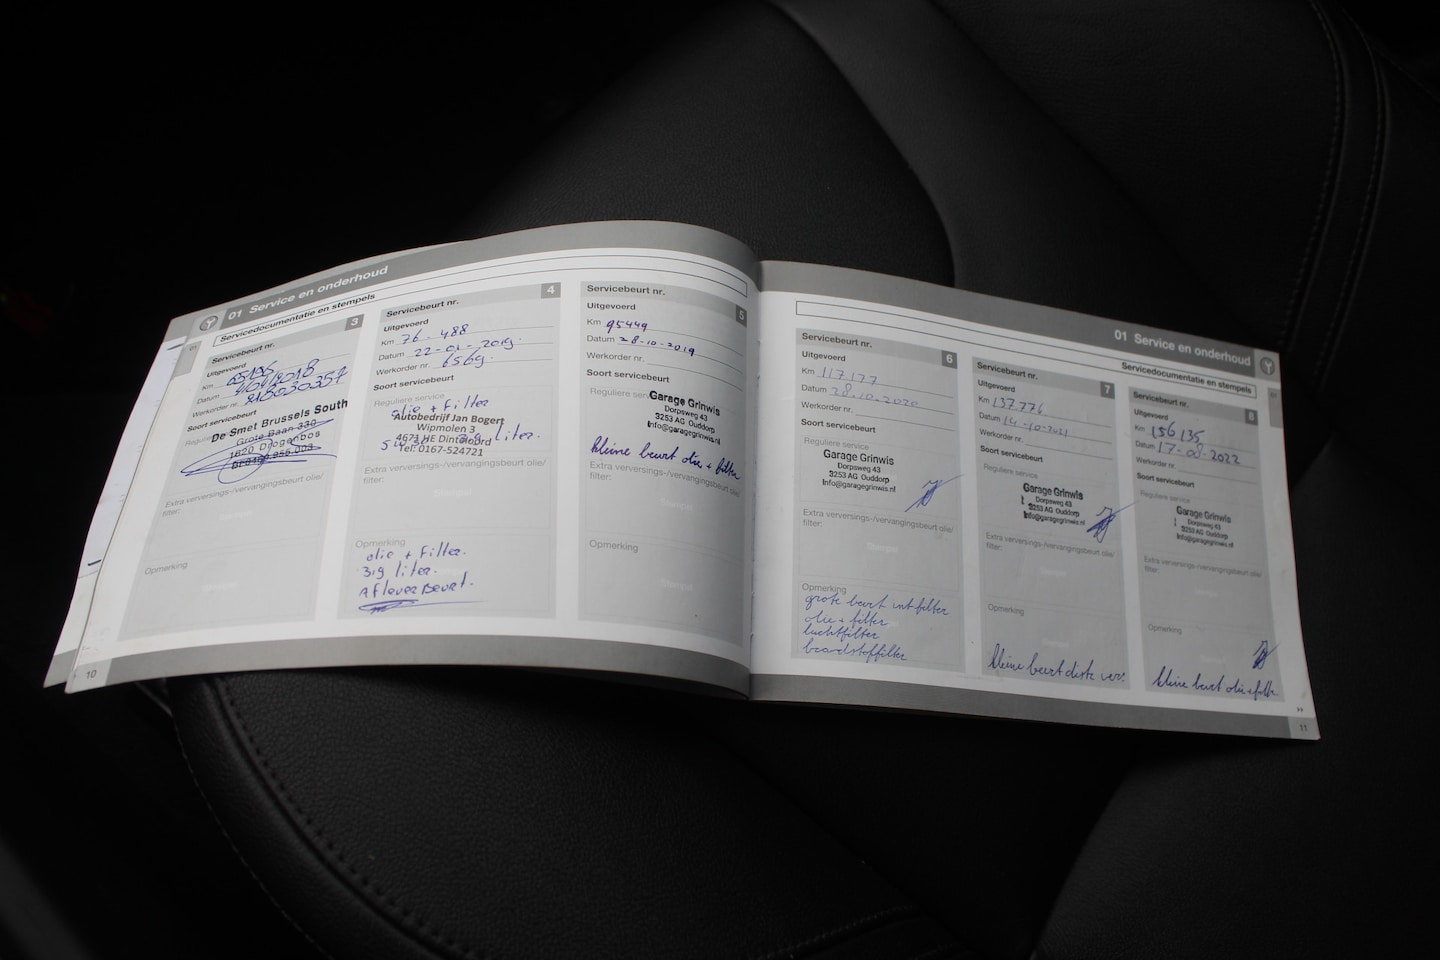 01 Service en onderhoud
Servicedocumentatie en stempels
3
Servicebeurt nr.
Uitgevoerd
Km 65196
Datum 4/04/2018
Werkorder nr. 218030357
Soort servicebeurt
De Smet Brussels South
Grote Baan 330
1620 Drogenbos
Extra verversings-/vervangingsbeurt olie/
filter:
Opmerking
10
4
Servicebeurt nr.
Uitgevoerd
Km 76.488
Datum 22-01-2019.
Werkorder nr. 6569.
Soort servicebeurt
Reguliere service
olie + filter
Autobedrijf Jan Bogert
Wipmolen 3
4671 HE Dinteloord
Tel: 0167-524721
liter.
Extra verversings-/vervangingsbeurt olie/
filter:
Opmerking
olie + filter.
3,9 liter.
Afleverbeurt.
5
Servicebeurt nr.
Uitgevoerd
Km 95449
Datum 28-10-2019
Werkorder nr.
Soort servicebeurt
Reguliere service
Garage Grinwis
Dorpsweg 43
3253 AG Ouddorp
Info@garagegrinwis.nl
kleine beurt olie + filter
Extra verversings-/vervangingsbeurt olie/
filter:
Opmerking
01 Service en onderhoud
Servicedocumentatie en stempels
01
6
Servicebeurt nr.
Uitgevoerd
Km 117177
Datum 28.10-2020
Werkorder nr.
Soort servicebeurt
Reguliere service
Garage Grinwis
Dorpsweg 43
3253 AG Ouddorp
Info@garagegrinwis.nl
Extra verversings-/vervangingsbeurt olie/
filter:
Opmerking
grote beurt int filter
olie + filter
luchtfilter
brandstoffilter
7
Servicebeurt nr.
Uitgevoerd
Km 137776
Datum 14-10-2021
Werkorder nr.
Soort servicebeurt
Reguliere service
Garage Grinwis
Dorpsweg 43
3253 AG Ouddorp
Info@garagegrinwis.nl
Extra verversings-/vervangingsbeurt olie/
filter:
Opmerking
kleine beurt
8
Servicebeurt nr.
Uitgevoerd
Km 156135
Datum 17-08-2022
Werkorder nr.
Soort servicebeurt
Reguliere service
Garage Grinwis
Dorpsweg 43
3253 AG Ouddorp
Info@garagegrinwis.nl
Extra verversings-/vervangingsbeurt olie/
filter:
Opmerking
kleine beurt olie + filter
11